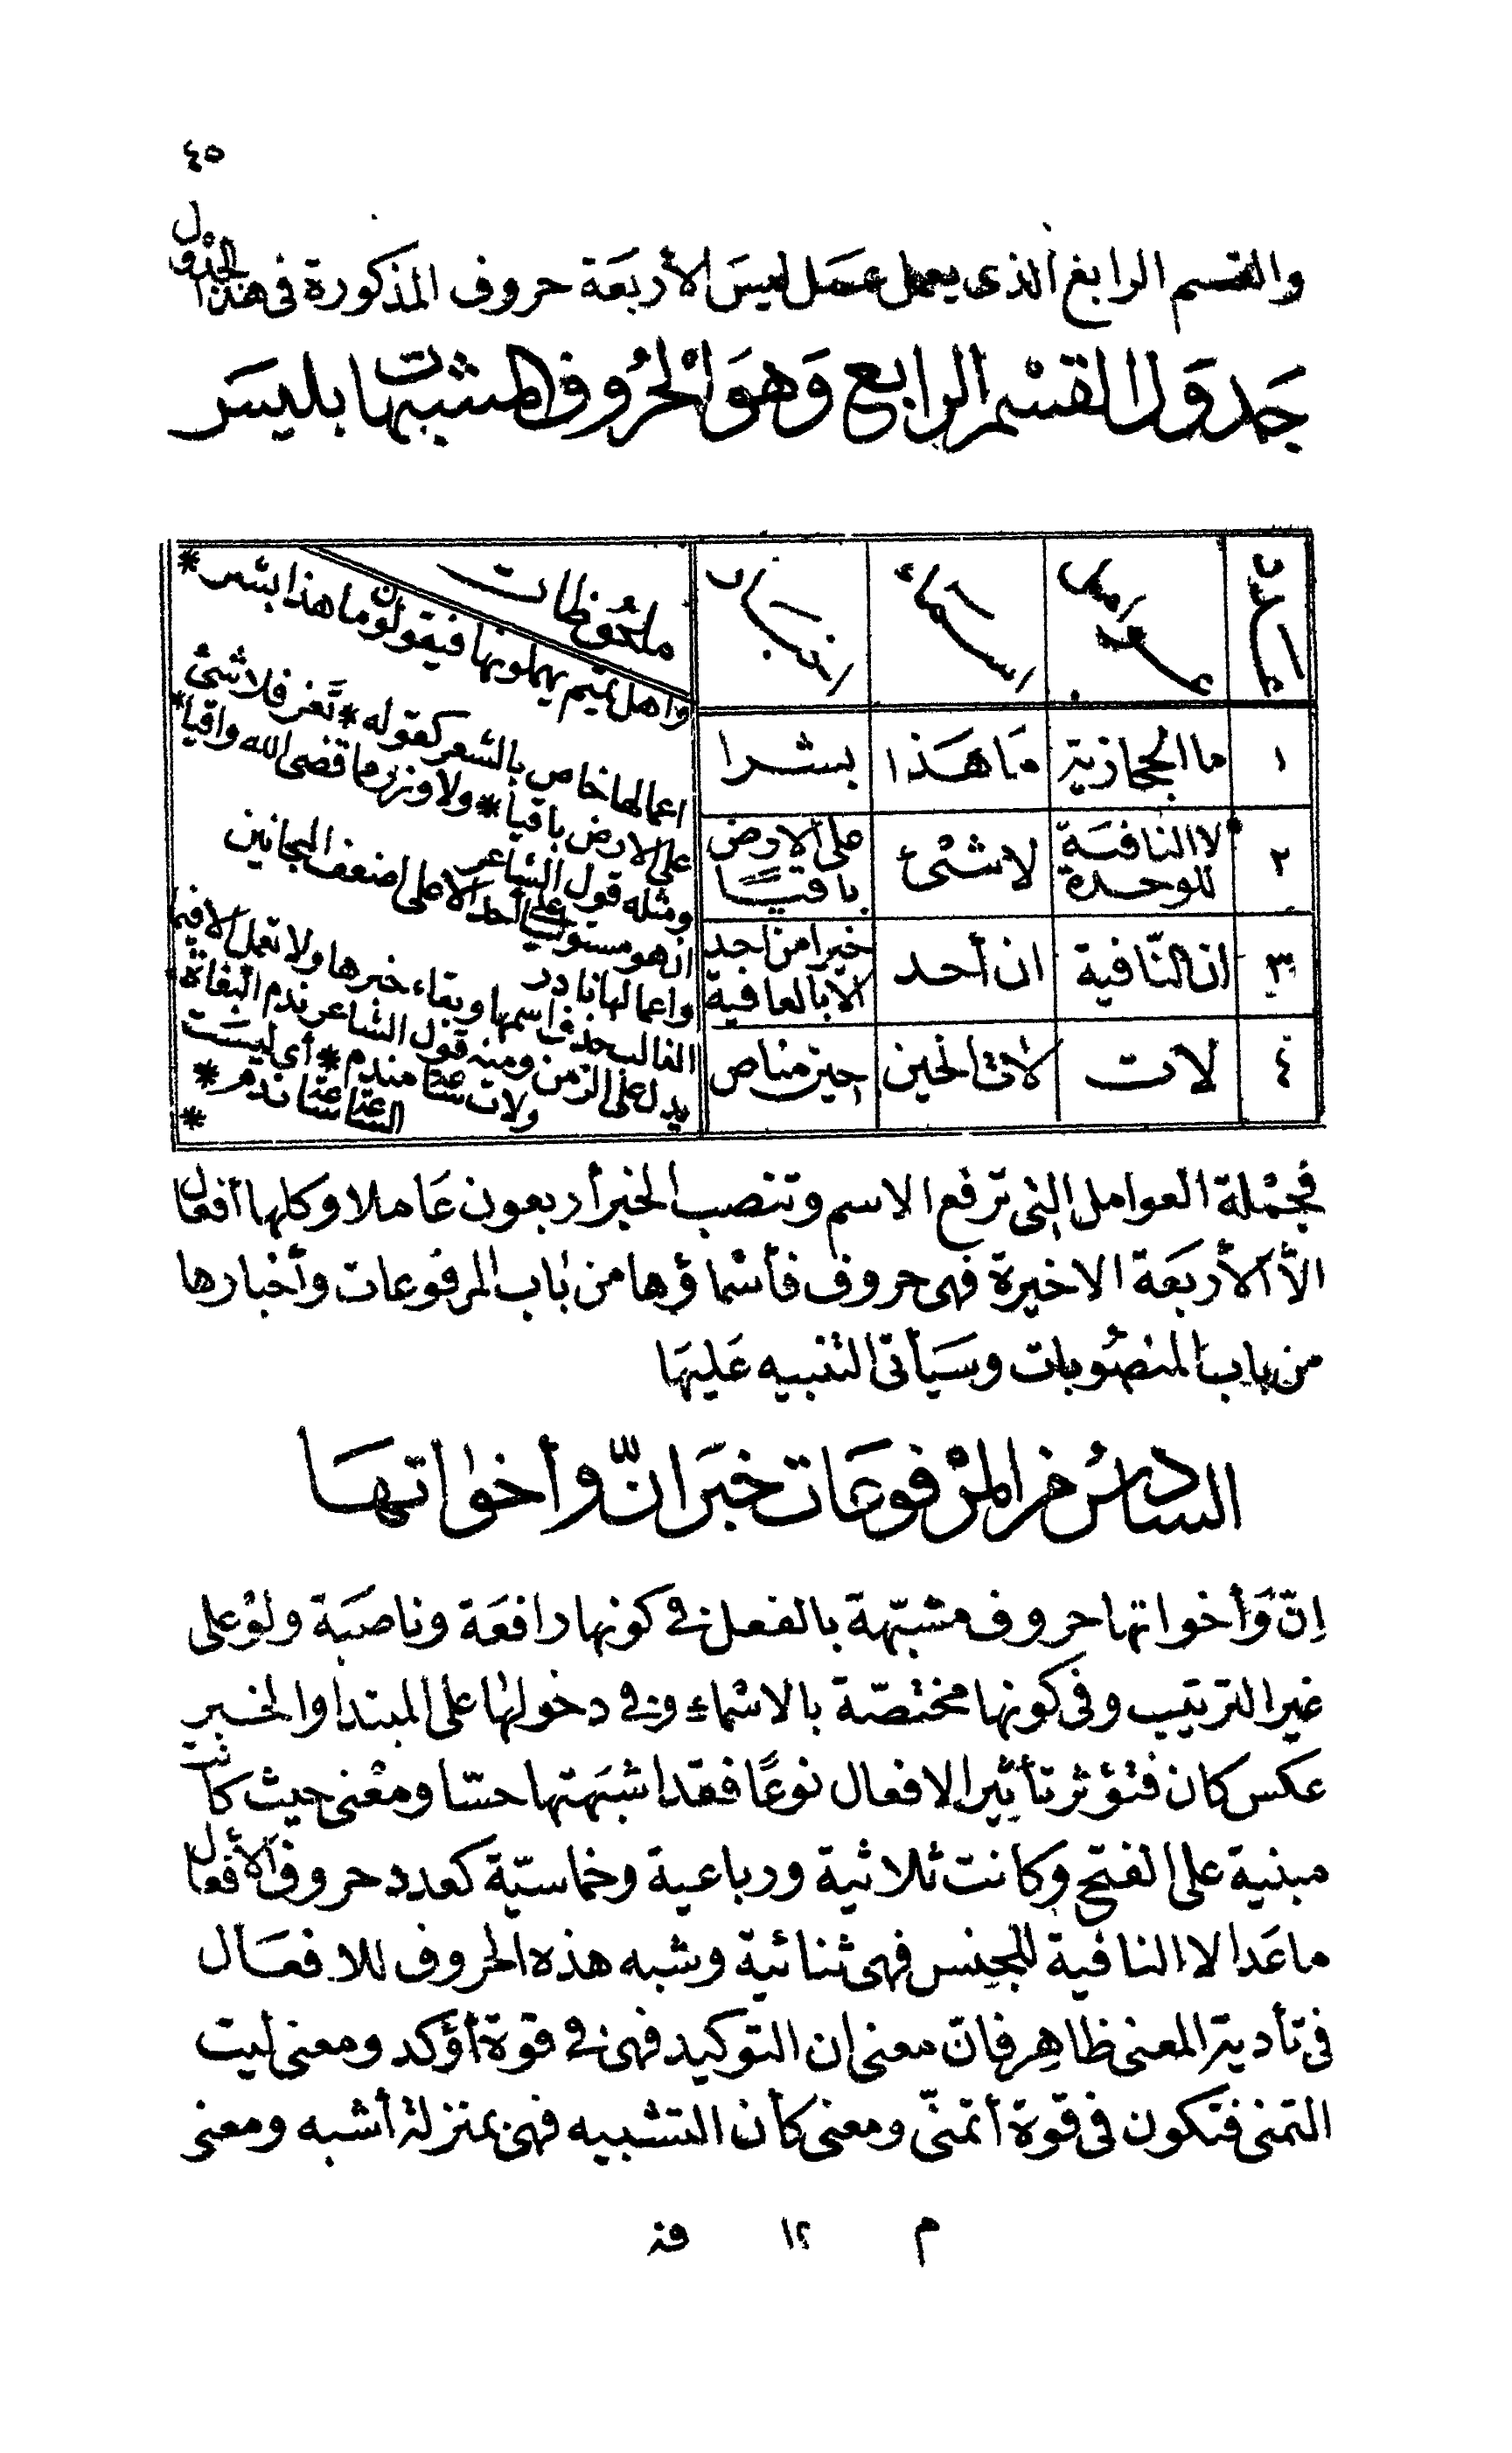 ٤٥
والقسم الرابع الذى يعمل عمل ليسَ لأربعَة حروف المذكورة فى هذا الجدْول
جَدوَل القسْم الرابع وَهوَ الْحُروف المشبهات بليسَ
عدد عوامل أسماء أخبار ملحُوظات
١ ما الحجازية مَا هَذا بشرا
٢ لا النافيَة للوحدة لا شئ على الارض باقيًا
٣ ان النّافية ان أحد خيرا من احد الا بالعافية
٤ لات لات الحين حين مناص
واهل تميم يهملونها فيقولون ما هذا بشر *
اعمالها خاص بالشعر كقوله * تَعَز فلا شئ
على الارض باقيا * ولا وزر مما قضى الله واقيا *
ومثله قول الشاعر
ان هو مستوليا على أحد الا على اضعف المجانين
واعمالها نادر
الغالب حذف اسمها وبقاء خبرها ولا تعمل الا فيما
يدل على الزمن ومنه قول الشاعر ندم البغاة
ولات ساعة مندم * أى ليسَت
الساعة ساعة ندم *
*
فجمْلة العوامل التى ترفع الاسم وتنصب الخبر أربعون عَاملا وكلها أفعال
الاّ الأربَعَة الاخيرة فهى حروف فأسْماؤها من باب المرفُوعات وأخبارها
من باب المنصُوبات وسَيأتى التنبيه عَليهَا
السادسُ من المرْفوعَات خبَر انّ وأخواتهَا
اِنّ وَأخواتها حروف مشبّهة بالفعل فى كونها رافعَة وناصبَة ولوْ على
غير الترتيب وفى كونها مختصّة بالاسْماء وفى دخولها على المبتدا والخبر
عكس كان فتُؤثر تأثير الافعال نوعًا فقد اشبَهتها حسّا ومعْنى حيث كانت
مبنية على الفتح وكانت ثلاثية ورباعية وخماسيّة كعدد حروف الأفعال
ما عَدا لا النافية للجنس فهى ثنائية وشبه هذه الحروف للافعَال
فى تأدية المعنى ظاهِر فانّ معنى ان التوكيد فهى فى قوة أؤكد ومعنى ليت
التمنى فتكون فى قوة أتمنّى ومعنى كأن التشبيه فهى بمنزلة أشبه ومعنى
م ١٢ فذ